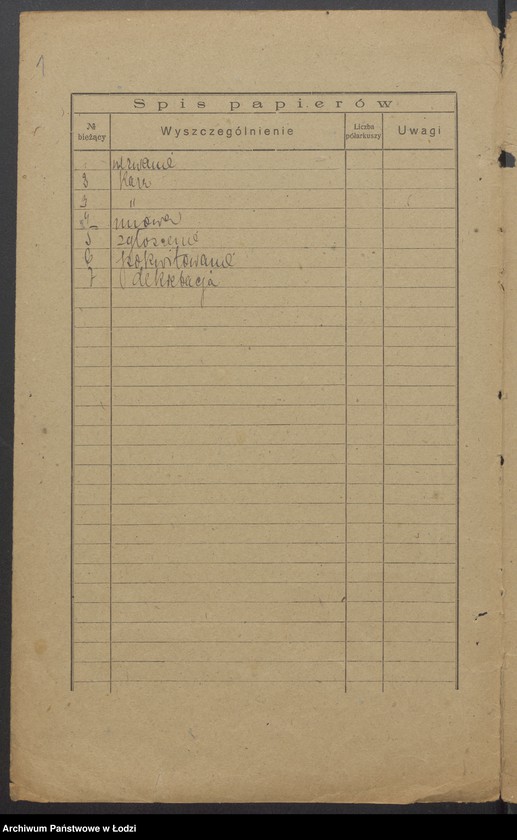 1
Spis papierów
№ bieżący
Wyszczególnienie
Liczba półarkuszy
Uwagi
3
3 "
4 umowa
5 zgłoszenie
6 pokwitowanie
7
Archiwum Państwowe w Łodzi